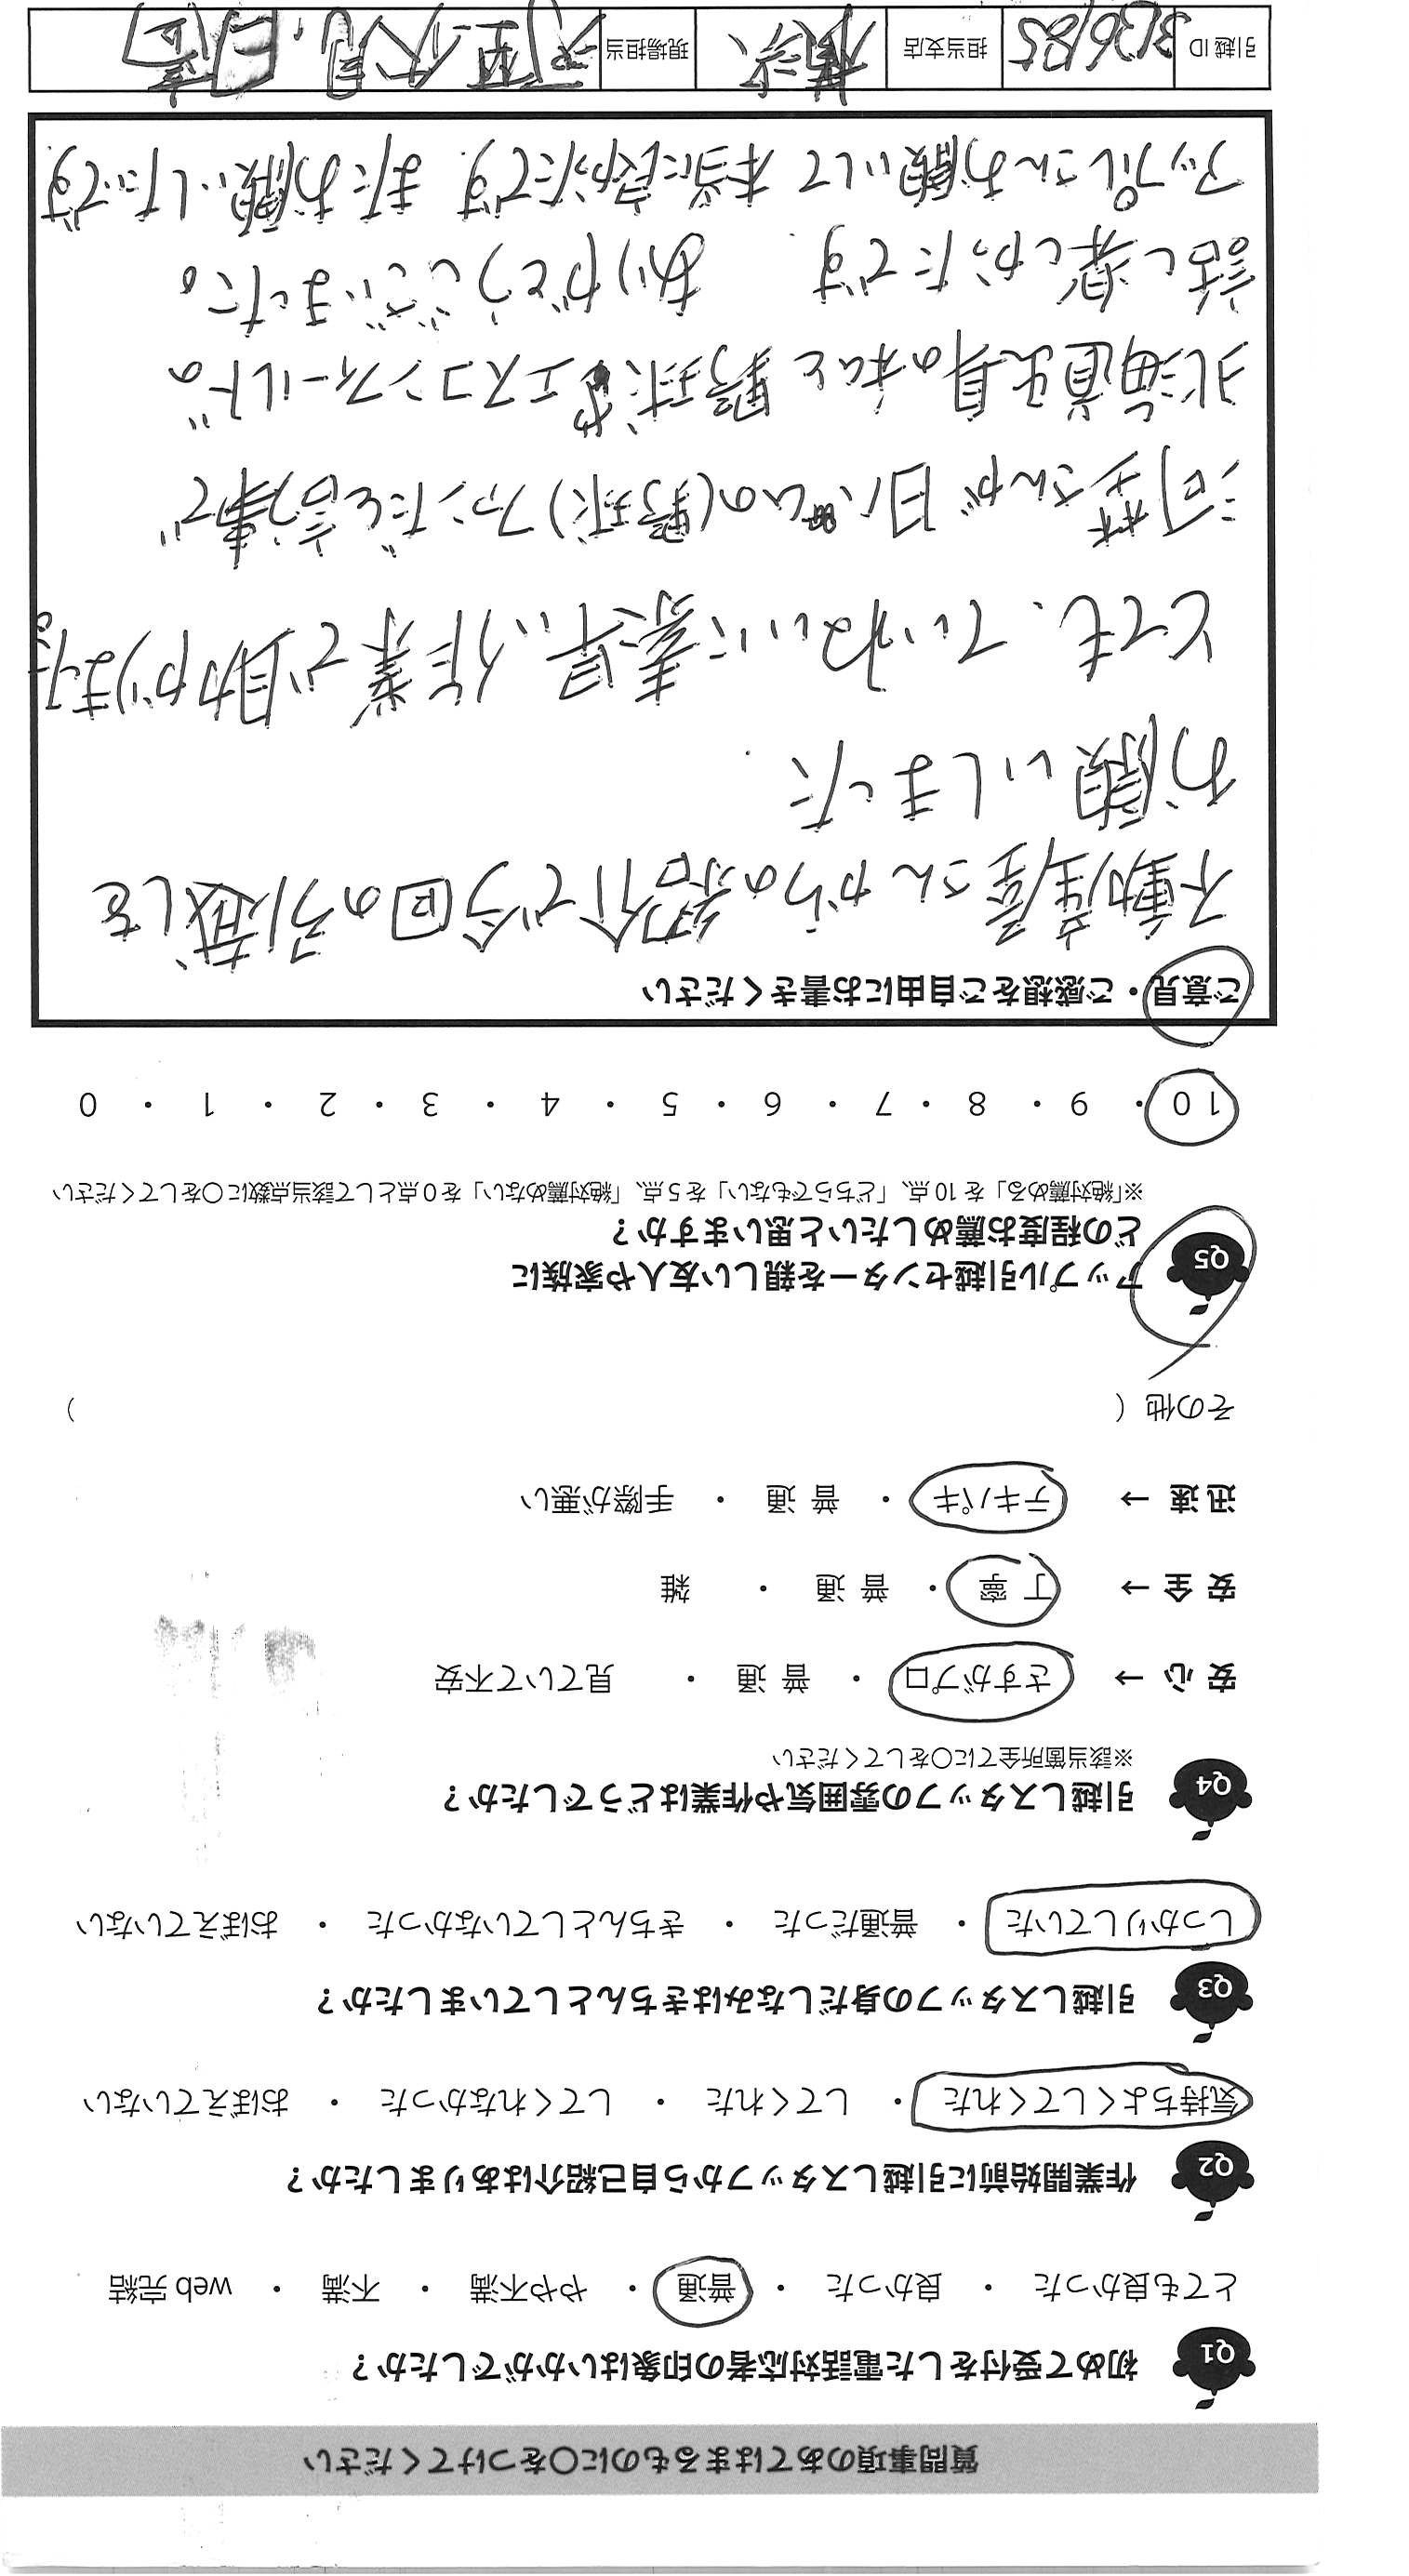 質問事項のあてはまるものに○をつけてください
Q1 初めて受付をした電話対応者の印象はいかがでしたか？
とても良かった ・ 良かった ・ 普通 ・ やや不満 ・ 不満 ・ web 完結
Q2 作業開始前に引越しスタッフから自己紹介はありましたか？
気持ちよくしてくれた ・ してくれた ・ してくれなかった ・ おぼえていない
Q3 引越しスタッフの身だしなみはきちんとしていましたか？
しっかりしていた ・ 普通だった ・ きちんとしていなかった ・ おぼえていない
Q4 引越しスタッフの雰囲気や作業はどうでしたか？
※該当箇所全てに○をしてください
安 心 → さすがプロ ・ 普 通 ・ 見ていて不安
安 全 → 丁 寧 ・ 普 通 ・ 雑
迅 速 → テキパキ ・ 普 通 ・ 手際が悪い
その他（ ）
Q5 アップル引越センターを親しい友人や家族に
どの程度お薦めしたいと思いますか？
※「絶対薦める」を 10 点、「どちらでもない」を 5 点、「絶対薦めない」を 0 点として該当点数に○をしてください
10 ・ 9 ・ 8 ・ 7 ・ 6 ・ 5 ・ 4 ・ 3 ・ 2 ・ 1 ・ 0
ご意見・ご感想をご自由にお書きください
不動産屋さんからの紹介で今回の引越しを
お願いしました.
とても、ていねいに素早い作業で助かりました。
さんが日ハムの(野球)ファンだと言う事で
北海道出身の私と野球やエスコンフィールドの
話し楽しかったです. ありがとうございました。
アップルさんお願いして本当に良かったです. またお願いしたいです.
引越 ID 3136185 担当支店 横浜 現場担当